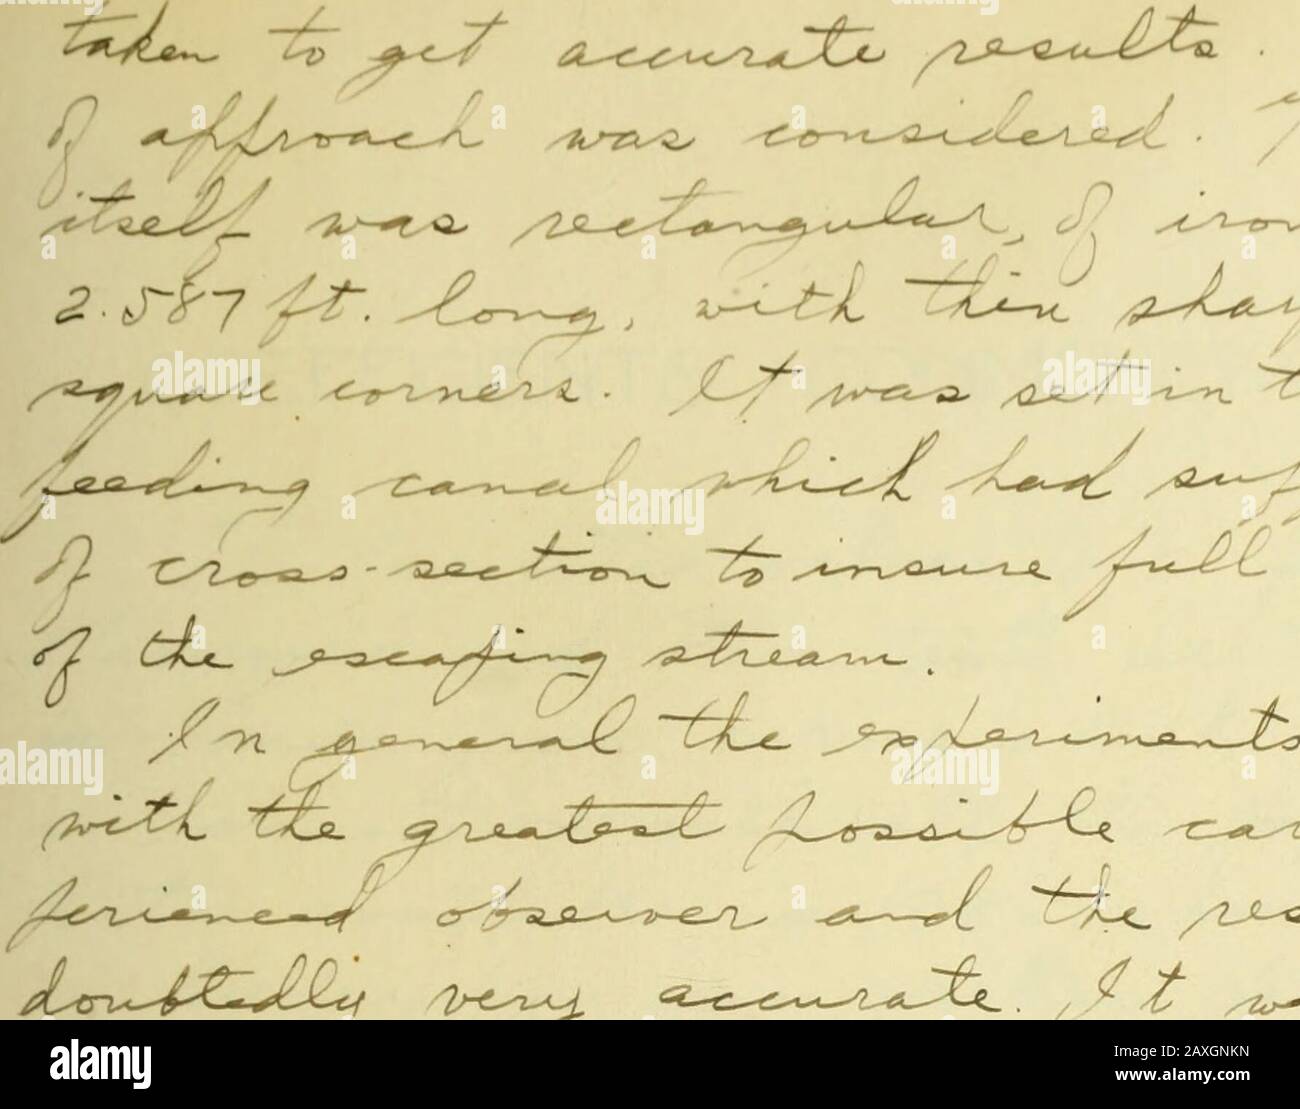 taken to get accurate results.
of approach was considered.
itself was rectangular, of iron
2.587 ft. long, with thin shar
square corners. It was set in t
feeding canal which had suf
of cross-section to insure full
of the escaping stream.
In general the experiments
with the greatest possible car
perienced observer and the res
doubtedly very accurate. It w
alamy
Image ID: 2AXGNKN
www.alamy.com